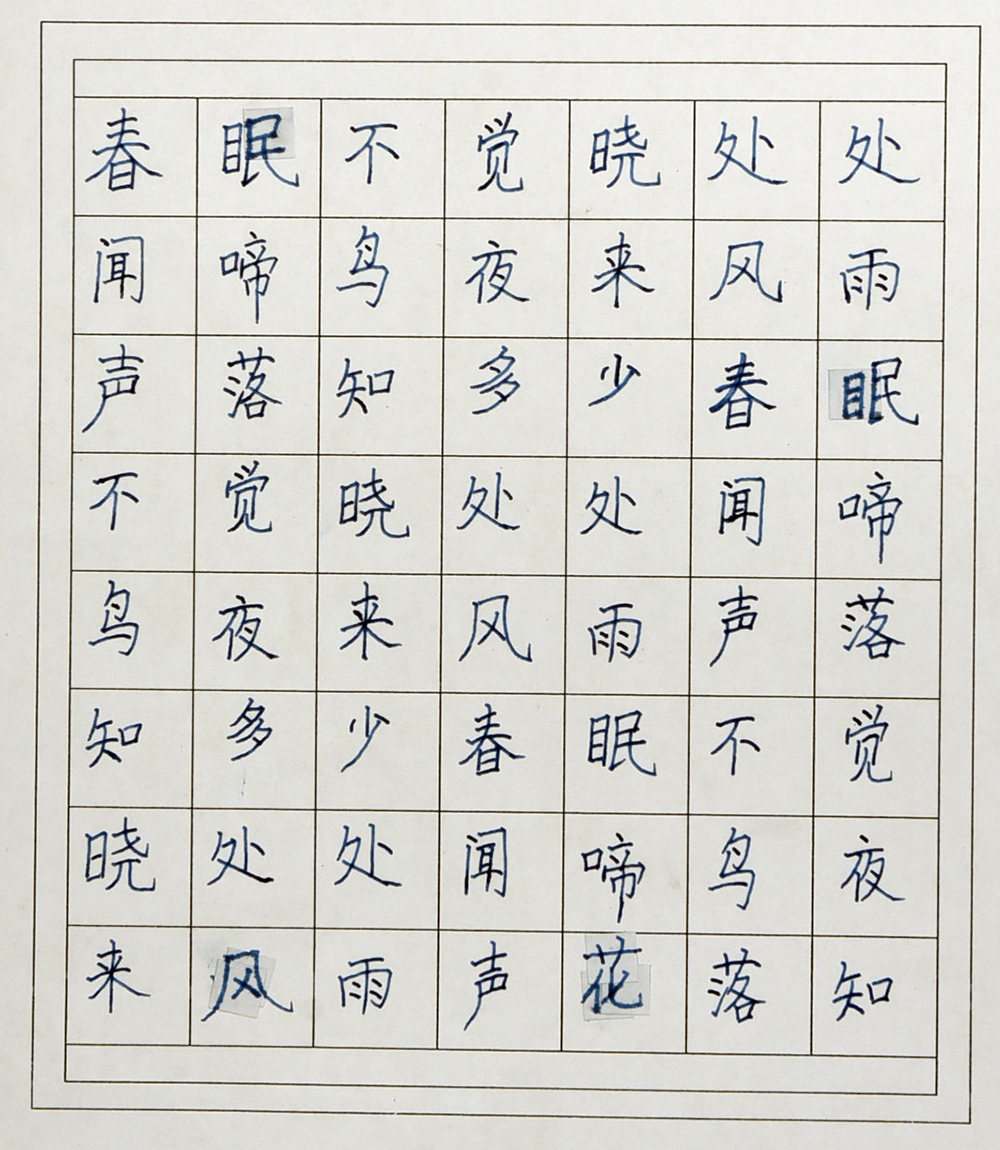 春眠不觉晓处处
闻啼鸟夜来风雨
声落知多少春眠
不觉晓处处闻啼
鸟夜来风雨声落
知多少春眠不觉
晓处处闻啼鸟夜
来风雨声花落知